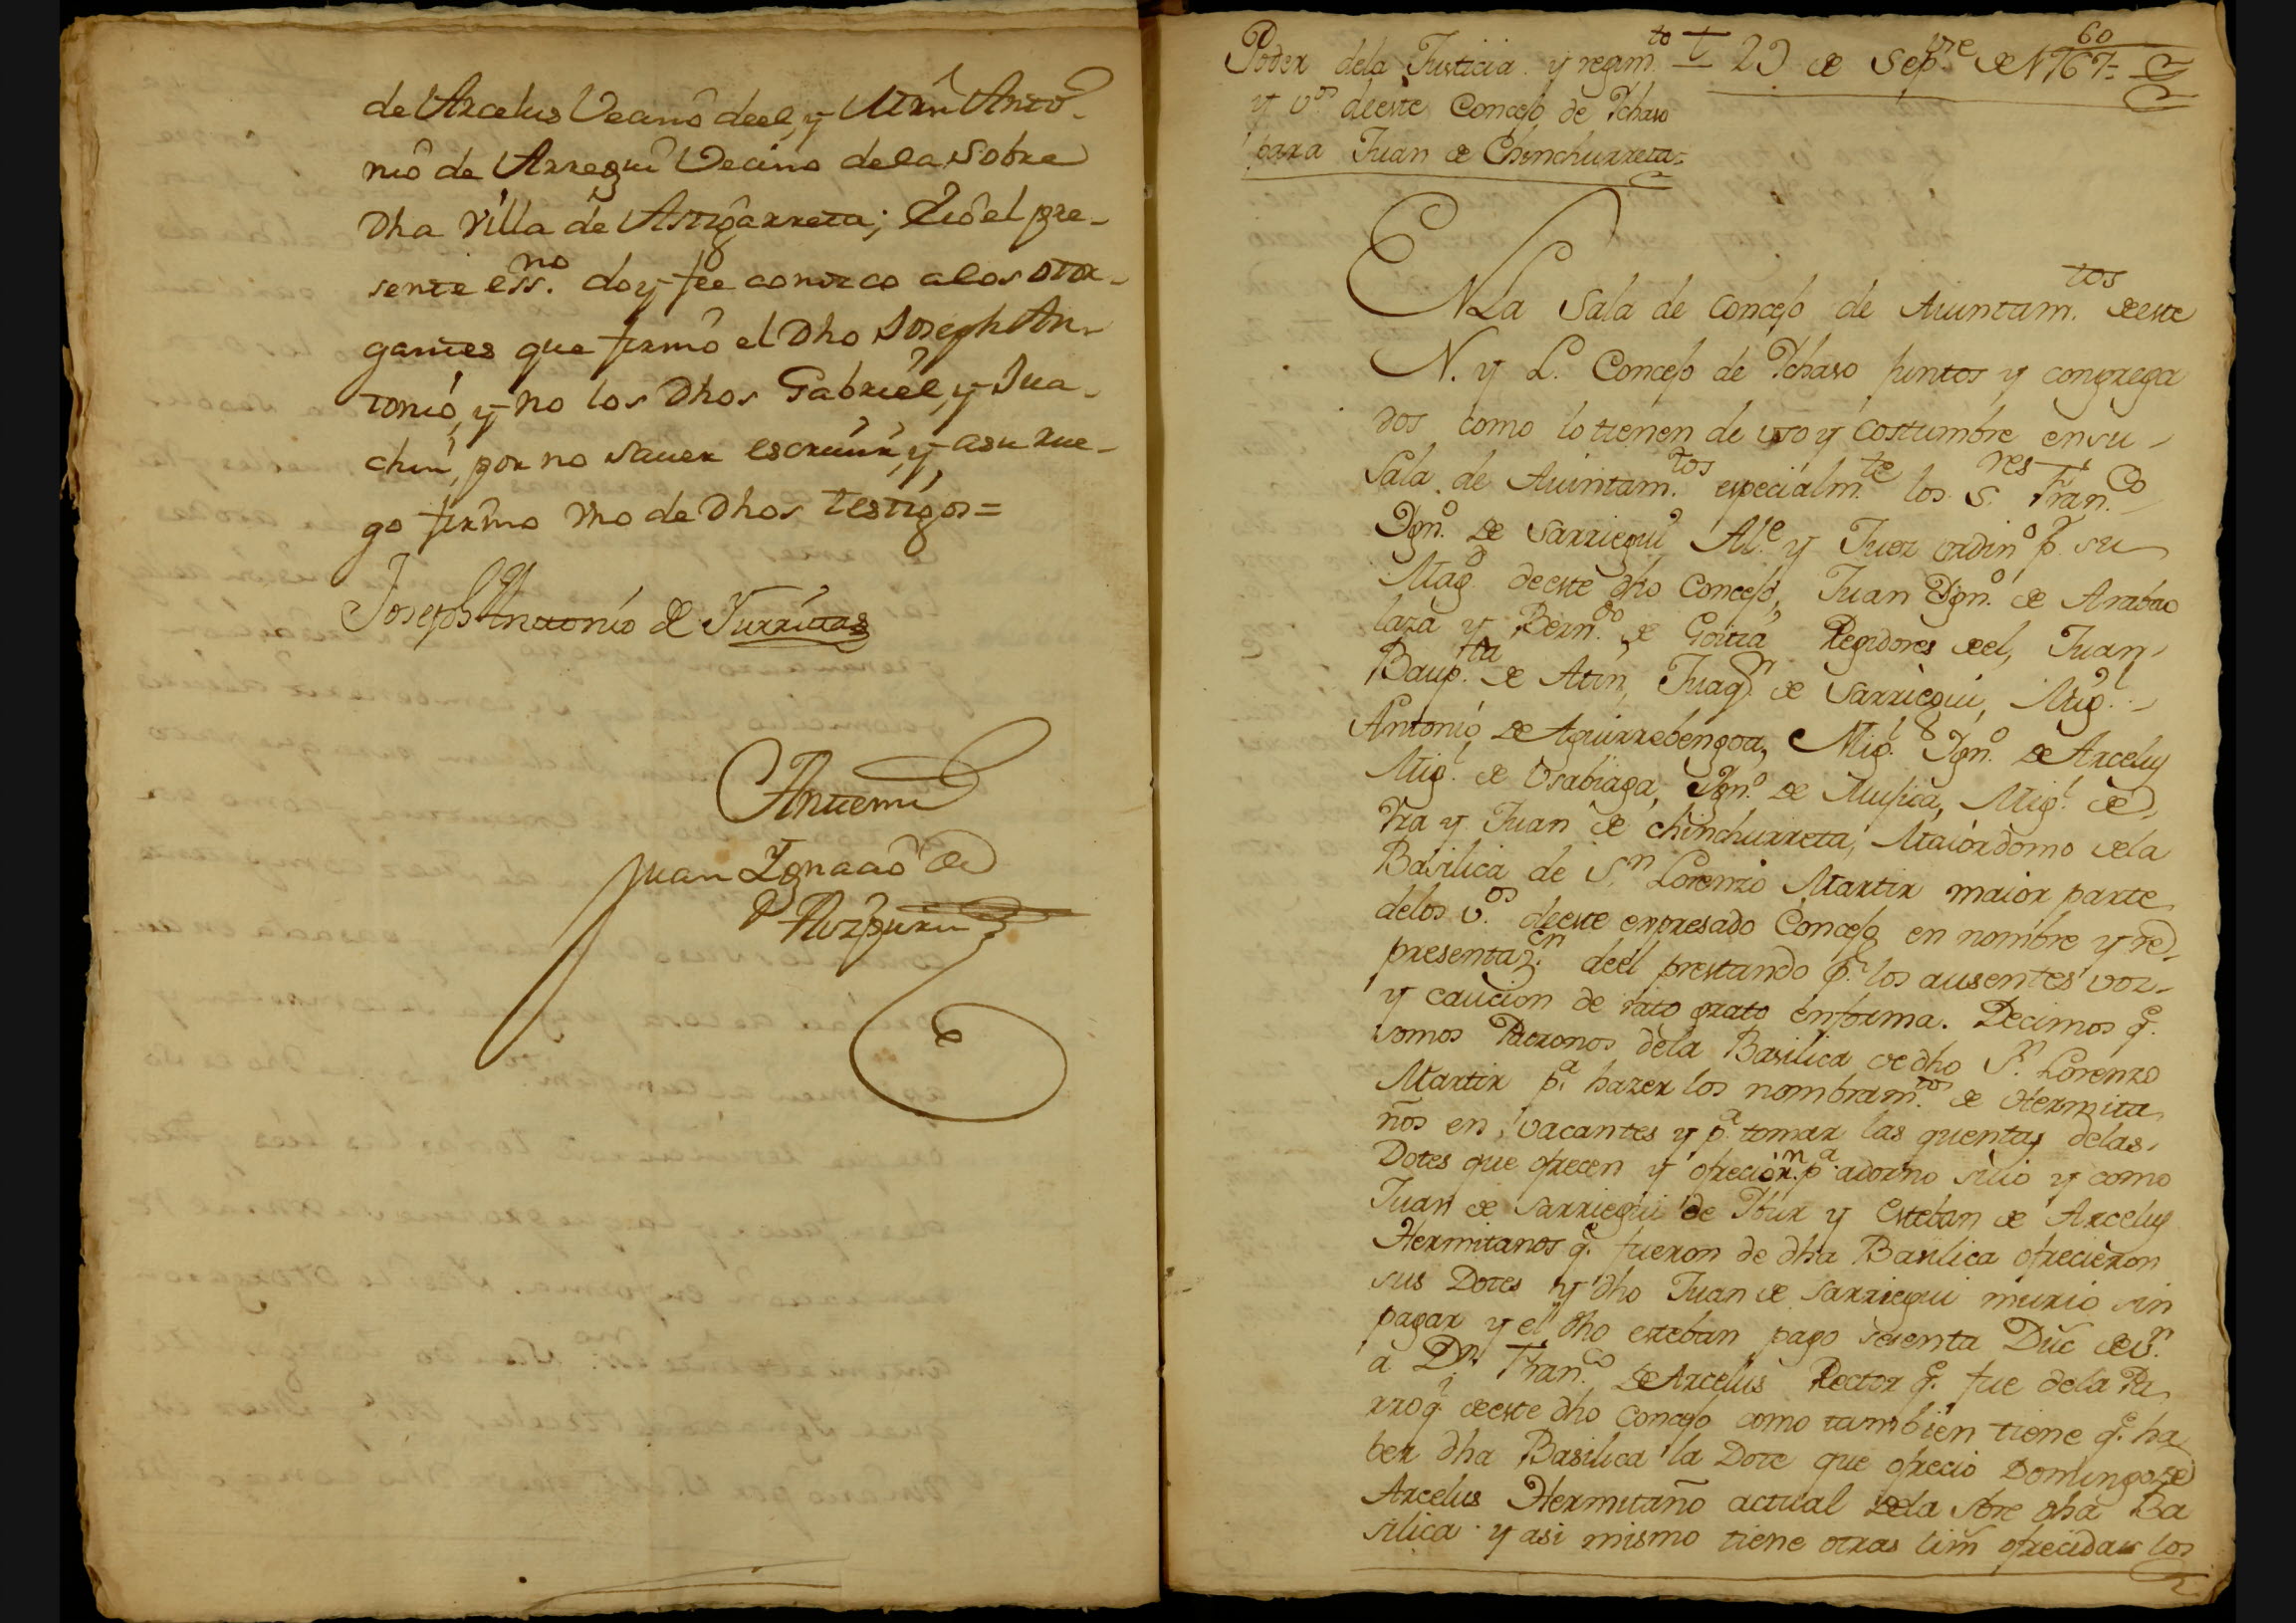 de Arcelus Vecino deel, y Mrn Anto-
nio de Arregui Vecino dela sobre
Dha villa de Astigarreta; è Yo el pre-
sente ess.no doy fee conozco alos otor-
gantes que firmó el Dho Joseph An-
tonio, y no los Dhos Gabriel, y Jua-
chin, por no saver escriuir, y asu rue-
go firmo vno de Dhos testigos=
Joseph Antonio de Yurritas
Antemi
Juan Ignacio de
Aizpuru
60
Poder dela Justicia y regim.to
y v.os deeste Concejo de Ychaso
para Juan de Chinchurreta=
23 de Sep.bre de 1767=
EN La Sala de Concejo de Aiuntam.tos deeste
N. y L. Concejo de Ychaso juntos y congrega
dos como lo tienen de uso y costumbre ensu
Sala de Aiuntam.tos especialm.te los S.res Fran.co
Ygn.o de Sarriegui Al.e y Juez ordin.o p.r su
Mag.d deeste dho Concejo, Juan Ygn.o de Arabao
laza y Bern.do de Goitia Regidores deel, Juan
Baup.ta de Atin, Juaq.n de Sarriegui, Mig.l
Antonio de Aguirrebengoa, Mig.l Ygn.o de Arcelus
Mig.l de Usabiaga, Ygn.o de Mujica, Mig.l de
Vra y Juan de chinchurreta, Maiordomo dela
Basilica de S.n Lorenzo Martir maior parte
delos v.os deeste expresado Concejo en nombre y re
presentaz.on deel prestando p.r los ausentes voz
y caucion de rato grato enforma. Decimos q.e
somos Patronos dela Basilica de dho S.n Lorenzo
Martir p.a hazer los nombram.tos de Hermita
ños en vacantes y p.a tomar las quentas delas
Dotes que ofrecen y ofrecior.n p.a adorno suio y como
Juan de Sarriegui de Ybur y Esteban de Arcelus
Hermitanos q.e fueron de dha Basilica ofrecieron
sus Dotes y dho Juan de Sarriegui murio sin
pagar y el dho esteban pago sesenta Duc. de v.n
a D.n Fran.co de Arcelus Rector q.e fue dela Pa
rroq.l deeste dho Concejo como tambien tiene q.e ha
ber dha Basilica la Dote que ofrecio Domingo de
Arcelus Hermitaño actual dela sbre dha Ba
silica y asi mismo tiene otras lim.s ofrecidas los